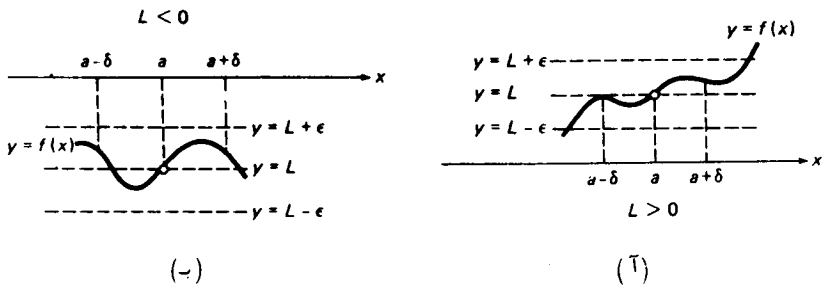 L < 0
a – δ a a + δ
x
y = L + ϵ
y = f (x)
y = L
y = L – ϵ
(ب)
y = f (x)
y = L + ϵ
y = L
y = L – ϵ
x
a – δ a a + δ
L > 0
(آ)